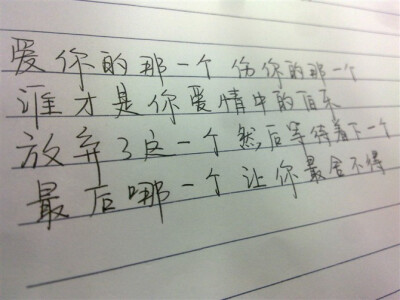 爱你的那一个 伤你的那一个
谁才是你爱情中的百乐
放弃了这一个 然后等待着下一个
最后哪一个 让你最舍不得